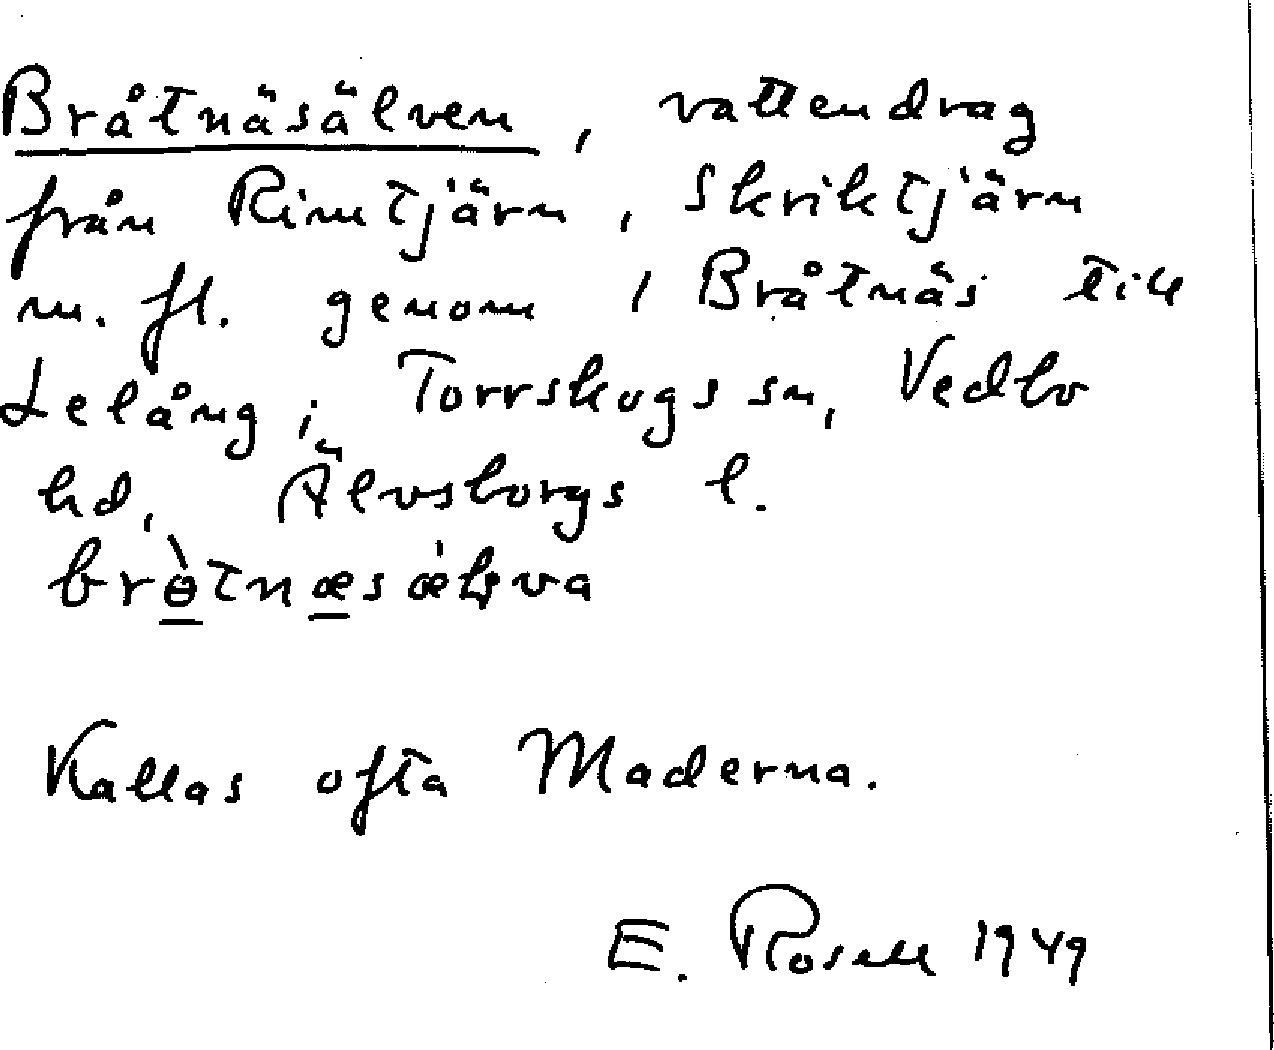 Bråtnäsälven, vattendrag
från Rimtjärn, Skriktjärn
m. fl. genom / Bråtnäs till
Lelång i Torrskogs sn, Vedbo
hd, Älvsborgs l.

Kallas ofta Maderna.
E. Rosell 1949